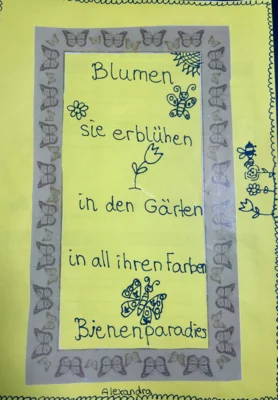 Blumen
sie erblühen
in den Gärten
in all ihren Farben
Bienenparadies
Alexandra